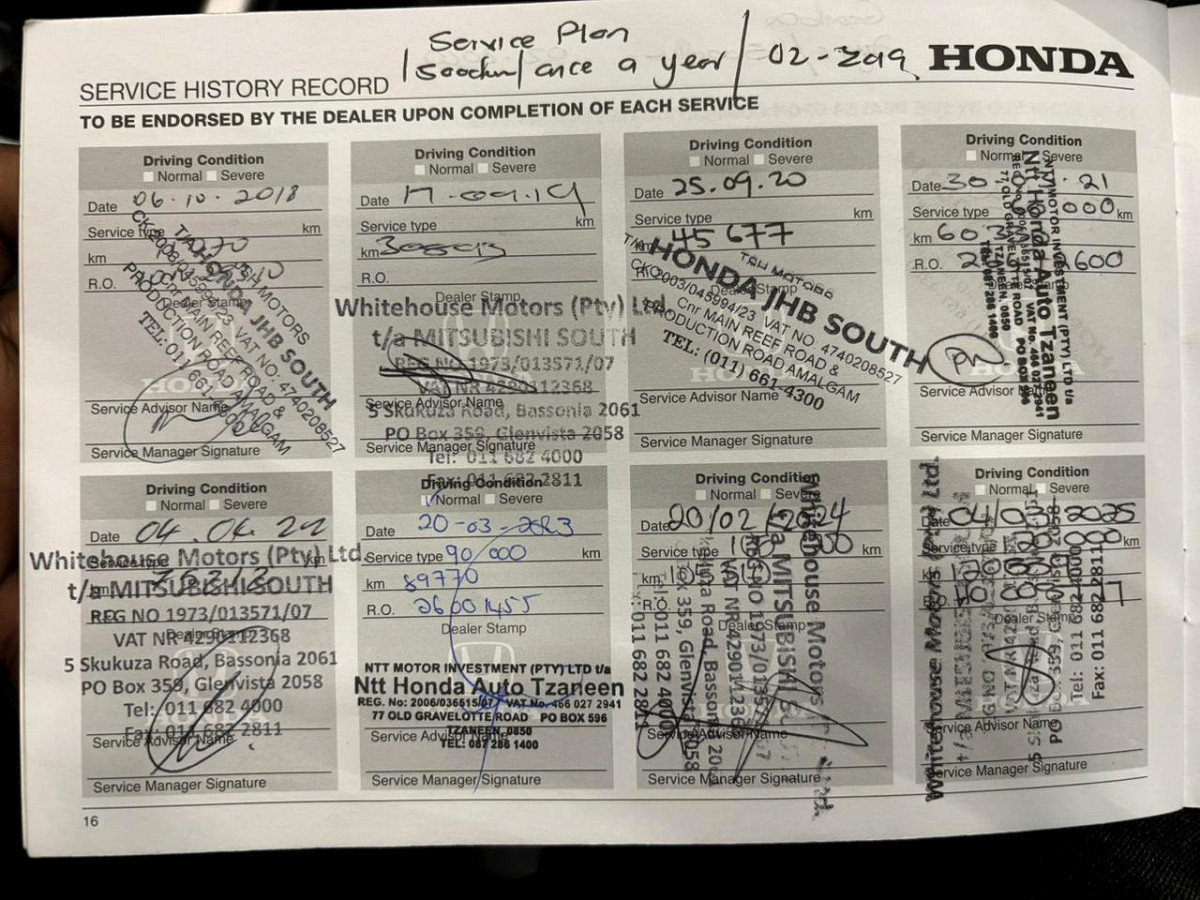 Service Plan
once a year / 02-2019
HONDA
SERVICE HISTORY RECORD
TO BE ENDORSED BY THE DEALER UPON COMPLETION OF EACH SERVICE
Driving Condition
Normal Severe
Date 06.10.2018
Service type km
km
R.O.
Dealer Stamp
T/A HONDA JHB SOUTH
CK2003/045994/23 VAT NO. 4740208527
Cnr MAIN REEF ROAD &
PRODUCTION ROAD AMALGAM
TEL: (011) 661-4300
Service Advisor Name
Service Manager Signature
Driving Condition
Normal Severe
Date 17.09.19
Service type km
km
R.O.
Dealer Stamp
Whitehouse Motors (Pty) Ltd
t/a MITSUBISHI SOUTH
REG NO 1973/013571/07
VAT NR 4290112368
Service Advisor Name
5 Skukuza Road, Bassonia 2061
PO Box 359, Glenvista 2058
Service Manager Signature
Tel: 011 682 4000
Fax: 011 682 2811
Driving Condition
Normal Severe
Date 25.09.20
Service type km
km 45 677
R.O.
Dealer Stamp
T/A HONDA JHB SOUTH
CK2003/045994/23 VAT NO. 4740208527
Cnr MAIN REEF ROAD &
PRODUCTION ROAD AMALGAM
TEL: (011) 661-4300
Service Advisor Name
Service Manager Signature
Driving Condition
Normal Severe
Date 30 21
Service type 000 km
km
R.O. 2600
NTT MOTOR INVESTMENT (PTY) LTD t/a
Ntt Honda Auto Tzaneen
77 OLD GRAVELOTTE ROAD PO BOX 596
TZANEEN, 0850
TEL: 087 286 1400
Service Advisor
Service Manager Signature
Driving Condition
Normal Severe
Date 04.04.22
Service type
Whitehouse Motors (Pty) Ltd
km
t/a MITSUBISHI SOUTH
REG NO 1973/013571/07
VAT NR 4290112368
Dealer Stamp
5 Skukuza Road, Bassonia 2061
PO Box 359, Glenvista 2058
Tel: 011 682 4000
Fax: 011 682 2811
Service Advisor Name
Service Manager Signature
Driving Condition
Normal Severe
Date 20-03-2023
Service type 90 000 km
km 89770
R.O. 26001455
Dealer Stamp
NTT MOTOR INVESTMENT (PTY) LTD t/a
Ntt Honda Auto Tzaneen
REG. No: 2006/036515/07 VAT No. 466 027 2941
77 OLD GRAVELOTTE ROAD PO BOX 596
TZANEEN, 0850
Service Advisor Name
TEL: 087 286 1400
Service Manager Signature
Driving Condition
Normal Severe
Date 20/02/2024
Service type km
km
R.O.
Dealer Stamp
Whitehouse Motors
t/a MITSUBISHI
REG NO 1973/013571/07
VAT NR 4290112368
Road, Bassonia
Box 359, Glenvista 2058
011 682 4000
011 682 2811
Service Advisor Name
Service Manager Signature
Driving Condition
Normal Severe
Date 04/03/2025
Service type km
km
R.O.
Dealer Stamp
Whitehouse Motors (Pty) Ltd.
PO Box 359, Glenvista 2058
Tel: 011 682 4000
Fax: 011 682 2811
Service Advisor Name
Service Manager Signature
16